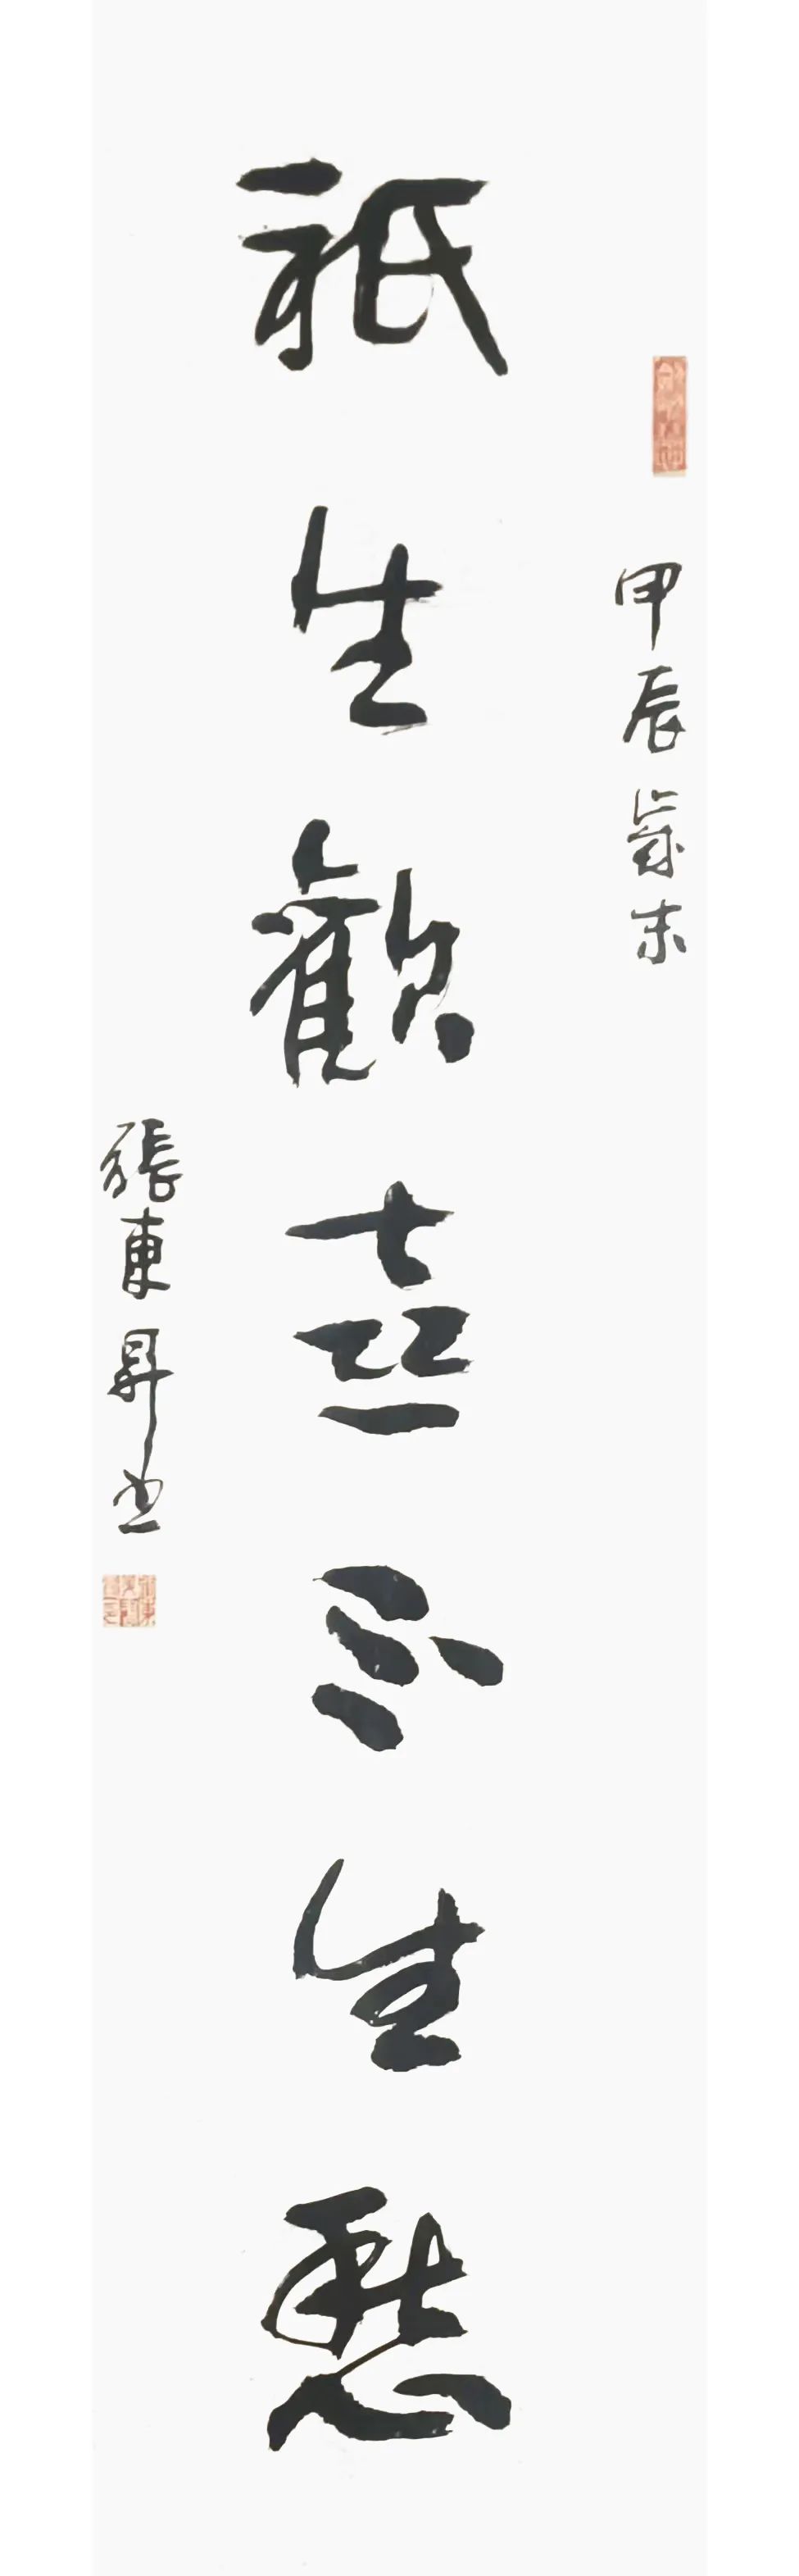 甲辰歲末
祇生歡喜不生愁
張東昇书